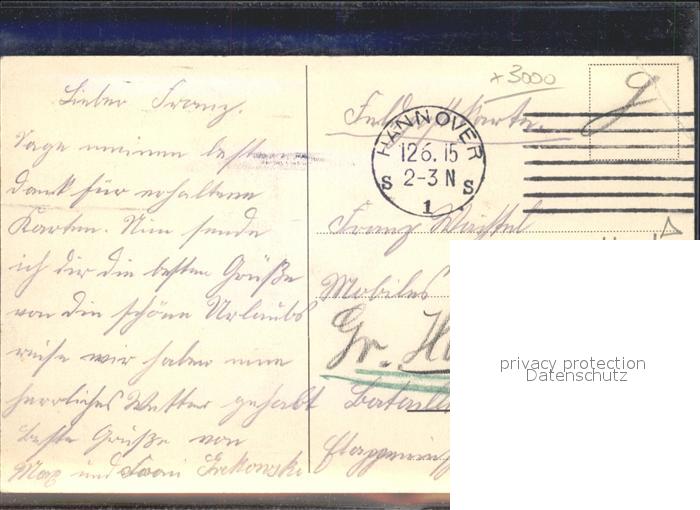 Lieber Franz.
Sage meinen besten
Dank für erhaltene
Karten. Nun sende
ich dir die besten Grüße
von die schöne Urlaubs
reise wir haben eine
herrliches Wetter gehabt
Beste Grüße von
Max und Frau
+3000
Feldpostkarte
HANNOVER
12.6.15
S 2-3 N S
1
Franz
Mobiles
Gr.
privacy protection
Datenschutz